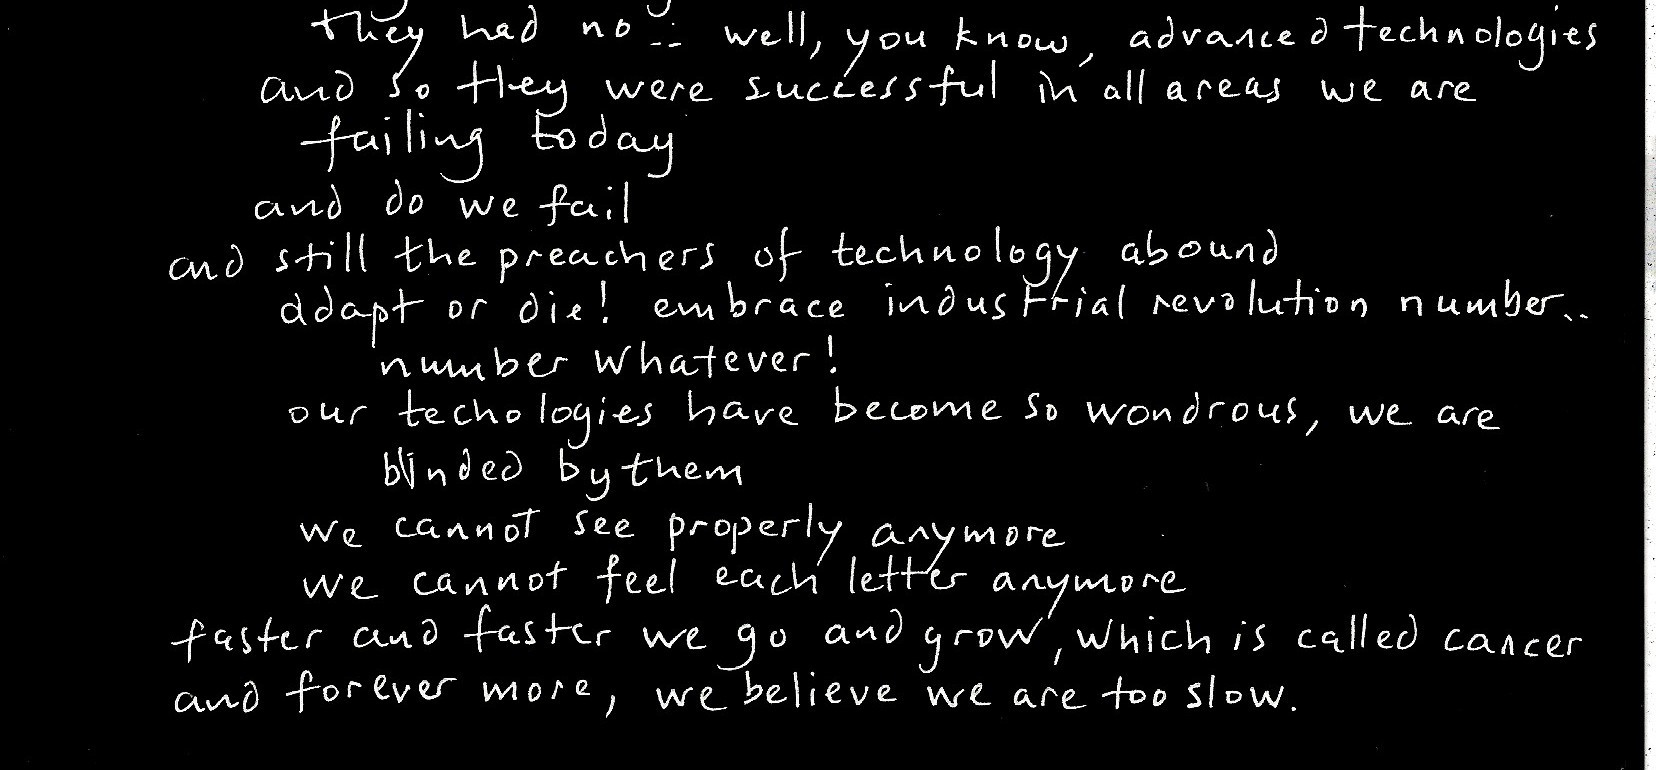 they had no... well, you know, advanced technologies
and so they were successful in all areas we are
failing today
and do we fail
and still the preachers of technology abound
adapt or die! embrace industrial revolution number..
number whatever!
our techologies have become so wondrous, we are
blinded by them
we cannot see properly anymore
we cannot feel each letter anymore
faster and faster we go and grow, which is called cancer
and forever more, we believe we are too slow.